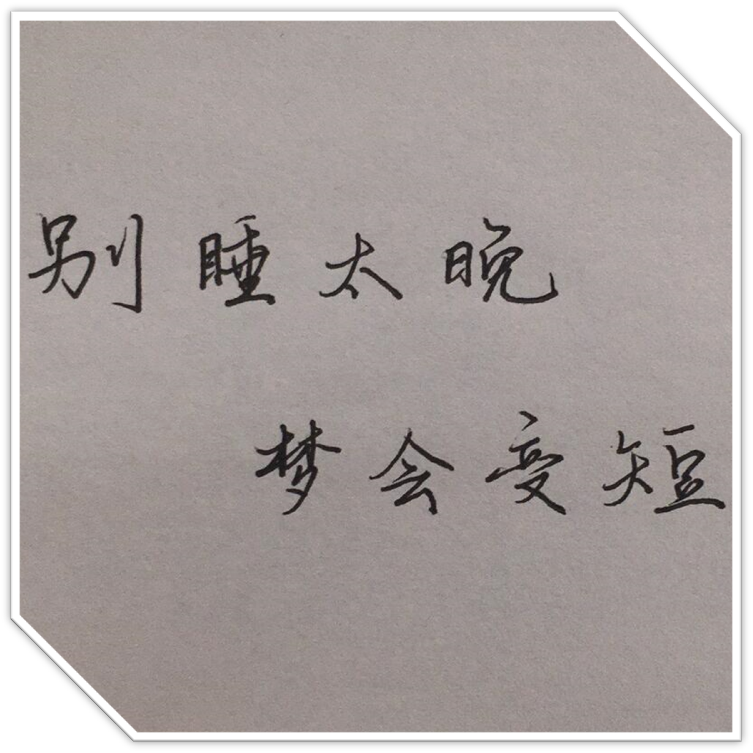 别睡太晚
梦会变短